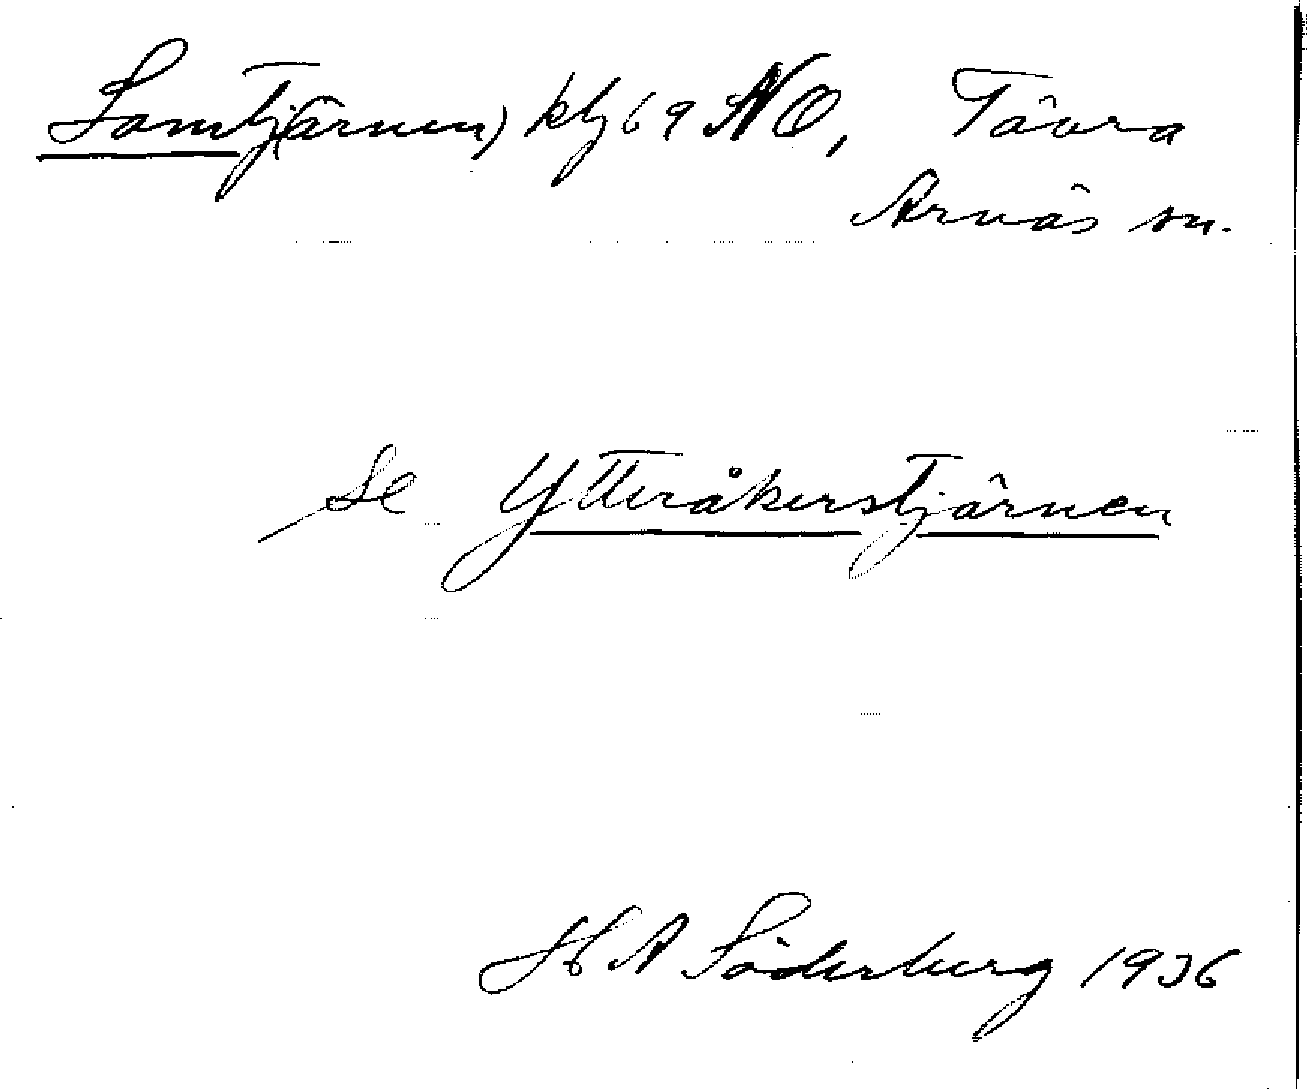 Somtj(ärnen) kbj 69 NO, Tävra
Arnäs sn.
Se Ytteråkerstjärnen
H A Söderberg 1936